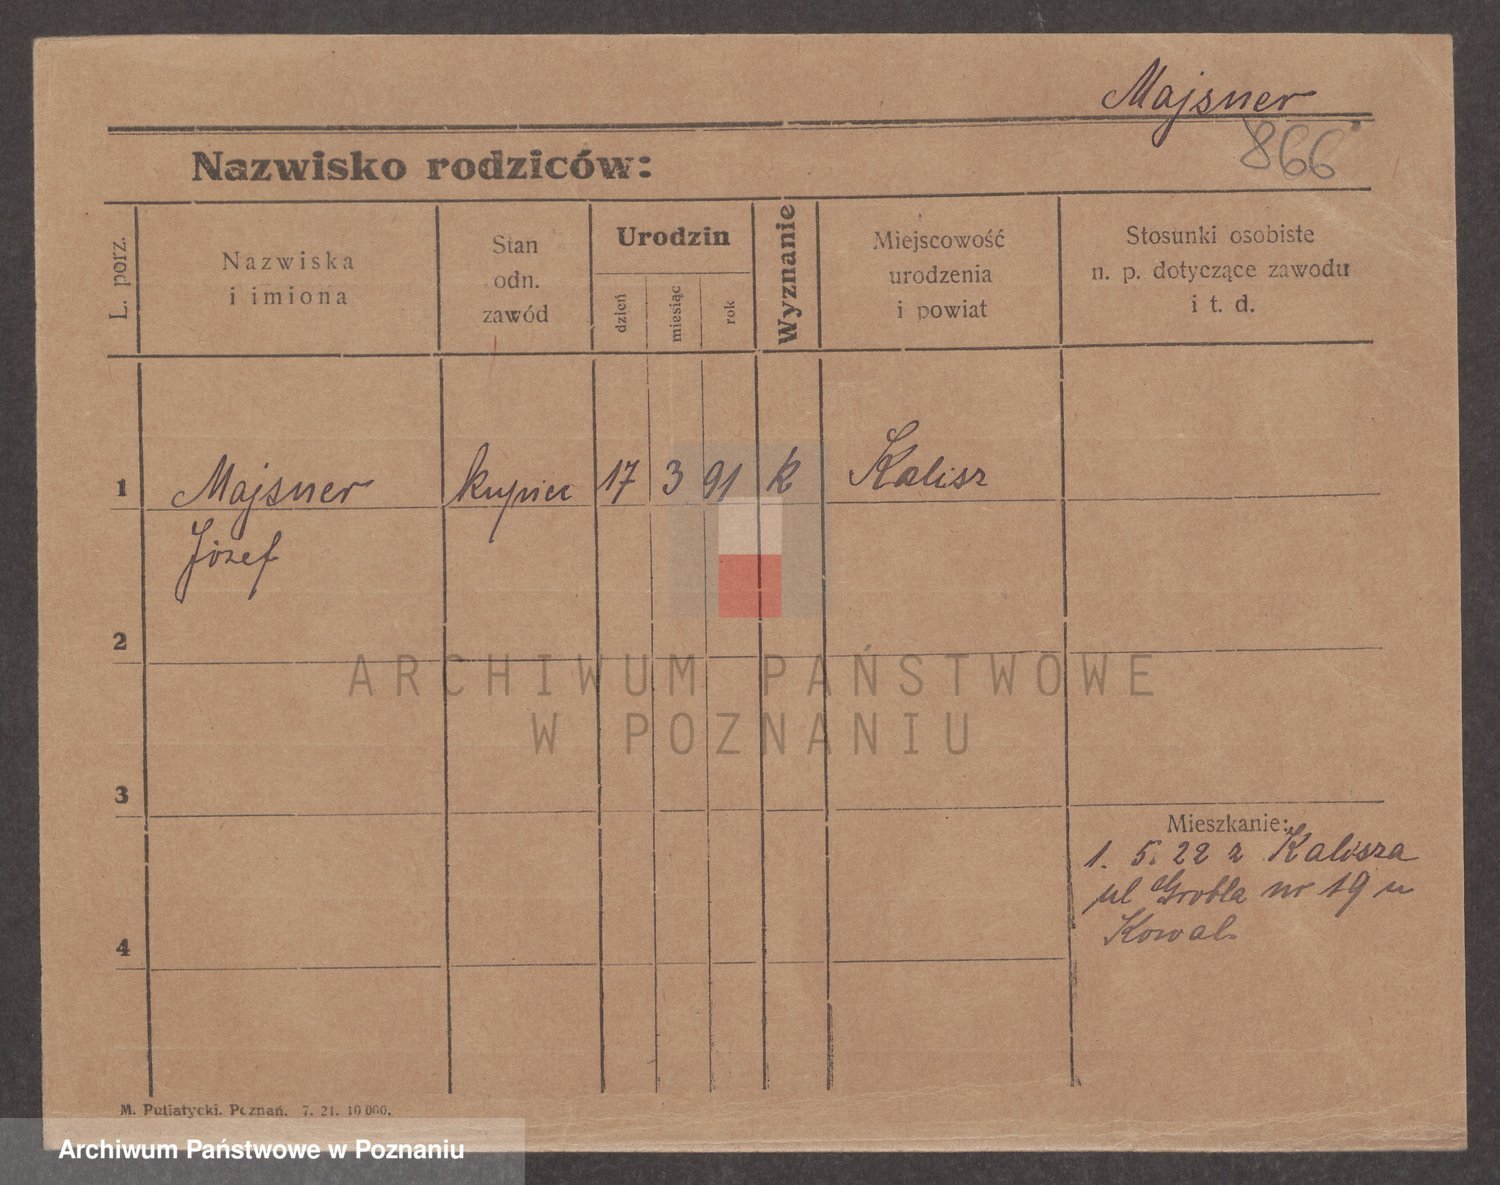 Majsner
866
Nazwisko rodziców:
L. porz.
Nazwiska
i imiona
Stan
odn.
zawód
Urodzin
dzień
miesiąc
rok
Wyznanie
Miejscowość
urodzenia
i powiat
Stosunki osobiste
n. p. dotyczące zawodu
i t. d.
1 Majsner kupiec 17 3 91 k Kalisz
Józef
2
ARCHIWUM PAŃSTWOWE
W POZNANIU
3
Mieszkanie:
1. 5. 22 z Kalisza
ul Grobla nr 19 u
Kowal.
4
M. Putiatycki. Poznań. 7. 21. 10 000.
Archiwum Państwowe w Poznaniu